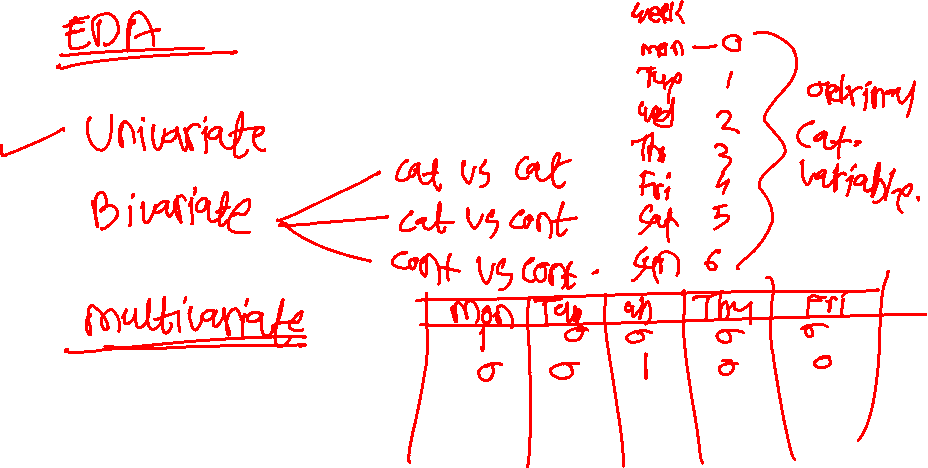 EDA
Univariate
Bivariate
cat vs cat
cat vs cont
cont vs cont.
multivariate
week
mon — 0
Tue 1
wed 2
Thr 3
Fri 4
Sat 5
Sun 6
cat.
variable.
Mon Tue Thu Fri
1 0 0 0 0
0 0 1 0 0